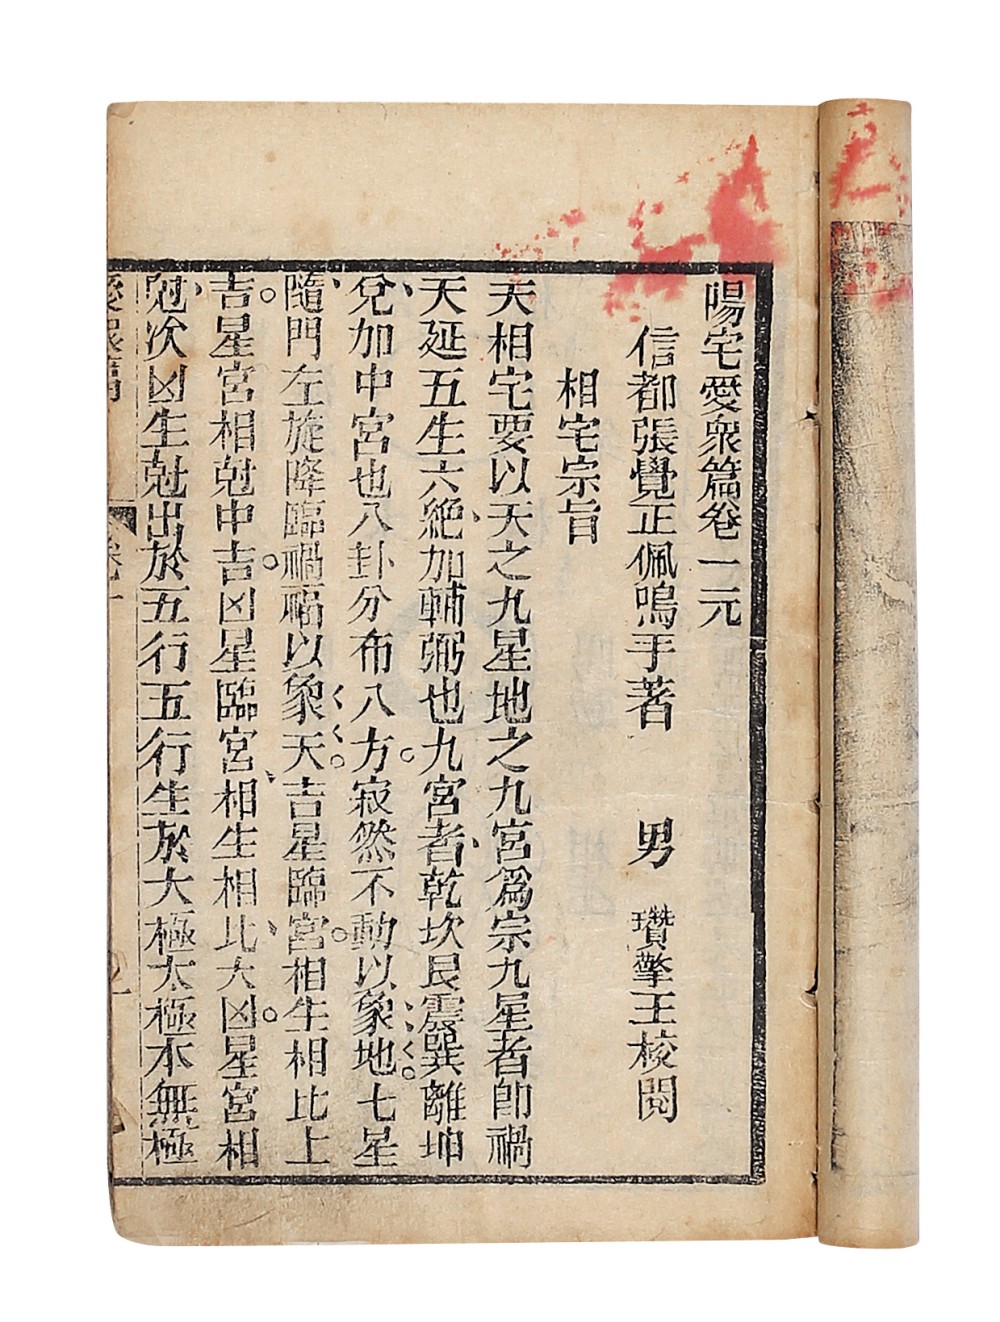 陽宅愛衆篇卷一元
信都張覺正佩鳴手著　男　瓚擎王校閱
相宅宗旨
夫相宅要以天之九星地之九宮爲宗九星者卽禍
天延五生六絶加輔弼也九宮者乾坎艮震巽離坤
兌加中宮也八卦分布八方寂然不動以象地七星
隨門左旋降臨禍福以象天吉星臨宮相生相比上
吉星宮相尅中吉凶星臨宮相生相比大凶星宮相
尅次凶生尅出於五行五行生於大極太極本無極
愛衆篇　卷一